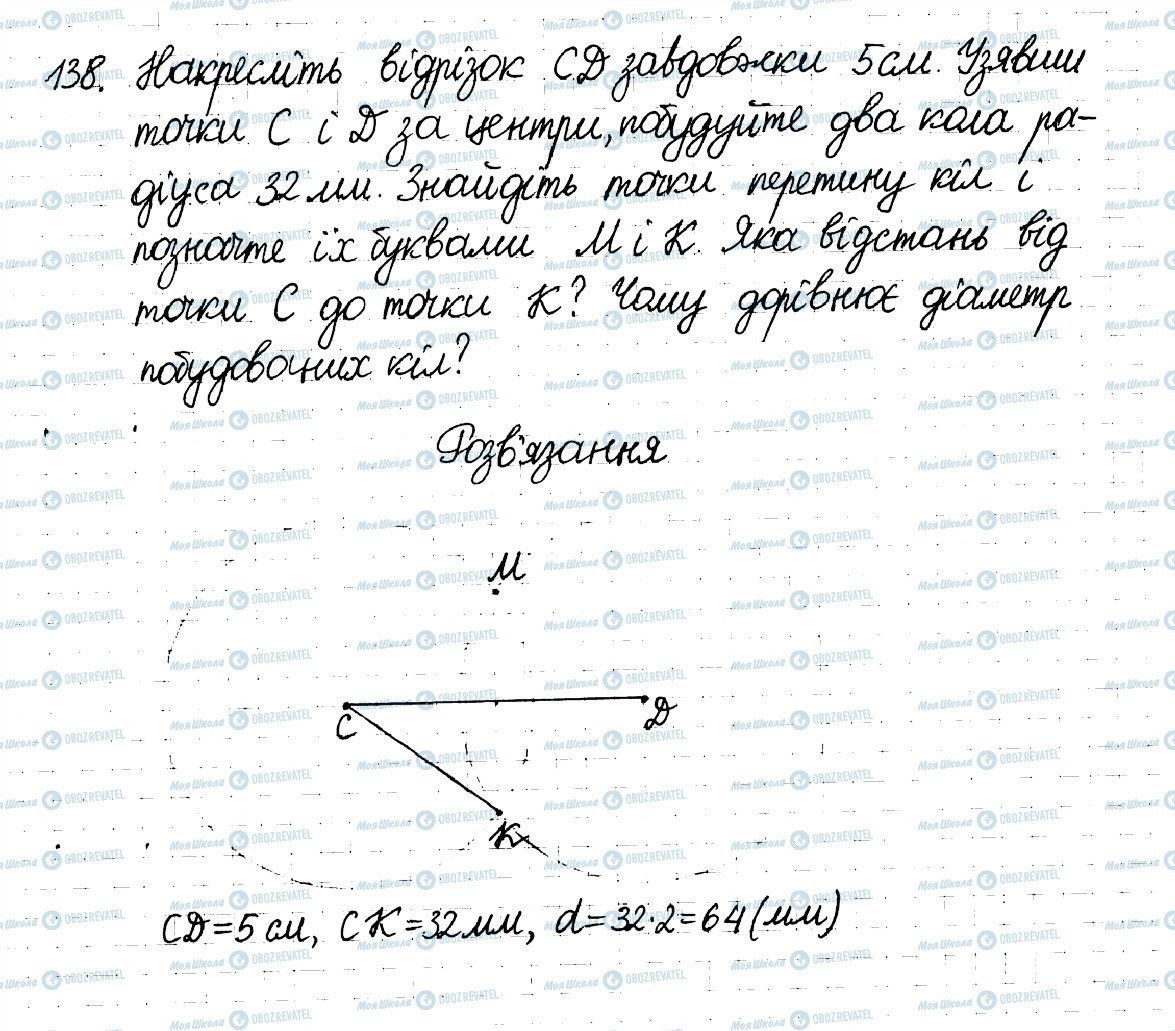 138. Накресліть відрізок CD завдовжки 5см. Узявши
точки C і D за центри, побудуйте два кола ра-
діуса 32 мм. Знайдіть точки перетину кіл і
позначте їх буквами M і K. Яка відстань від
точки C до точки K? Чому дорівнює діаметр
побудованих кіл?
Розв'язання
M
C
D
K
CD=5 см, CK=32мм, d=32·2=64(мм)
МояШкола OBOZREVATEL